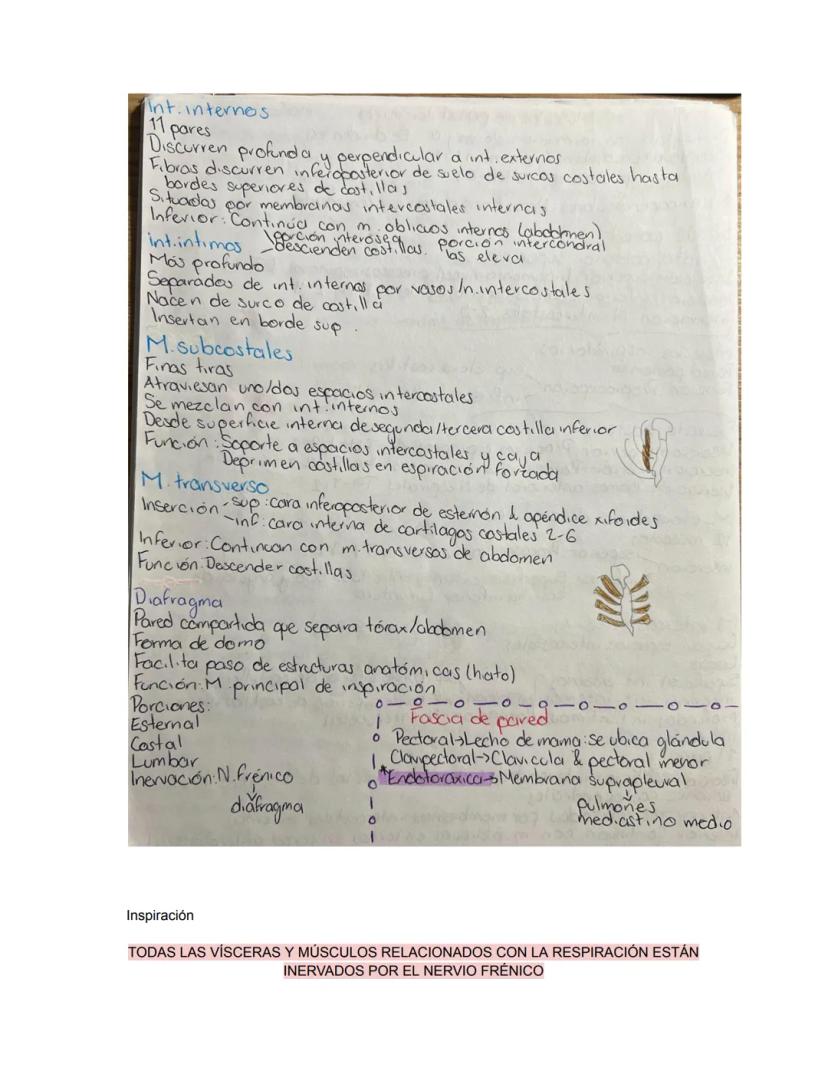 Int. internos
11 pares
Discurren profunda y perpendicular a int. externos
Fibras discurren inferoposterior de suelo de surcos costales hasta
bordes superiores de costillas
Situados por membranas intercostales internas
Inferior: Continúa con m. oblicuos internos (abdomen)
porción interósea porción intercondral
descienden costillas. las eleva
int. íntimos
Más profundo
Separados de int. internos por vasos/n. intercostales
Nacen de surco de costilla
Insertan en borde sup.
M. subcostales
Finas tiras
Atraviesan uno/dos espacios intercostales
Se mezclan con int. internos
Desde superficie interna de segunda/tercera costilla inferior
Función: Soporte a espacios intercostales y caja
Deprimen costillas en espiración forzada
M. transverso
Inserción - Sup: cara inferoposterior de esternón & apéndice xifoides
- inf: cara interna de cartílagos costales 2-6
Inferior: Continuan con m. transversos de abdomen
Función: Descender costillas
Diafragma
Pared compartida que separa tórax/abdomen
Forma de domo
Facilita paso de estructuras anatómicas (hiato)
Función: M. principal de inspiración
Porciones:
Esternal
Costal
Lumbar
Inervación: N. frénico
↓
diafragma
Fascia de pared
Pectoral → Lecho de mama: se ubica glándula
Clavipectoral → Clavicula & pectoral menor
*Endotoráxica → Membrana suprapleural
↓
pulmones
mediastino medio
Inspiración
TODAS LAS VÍSCERAS Y MÚSCULOS RELACIONADOS CON LA RESPIRACIÓN ESTÁN
INERVADOS POR EL NERVIO FRÉNICO